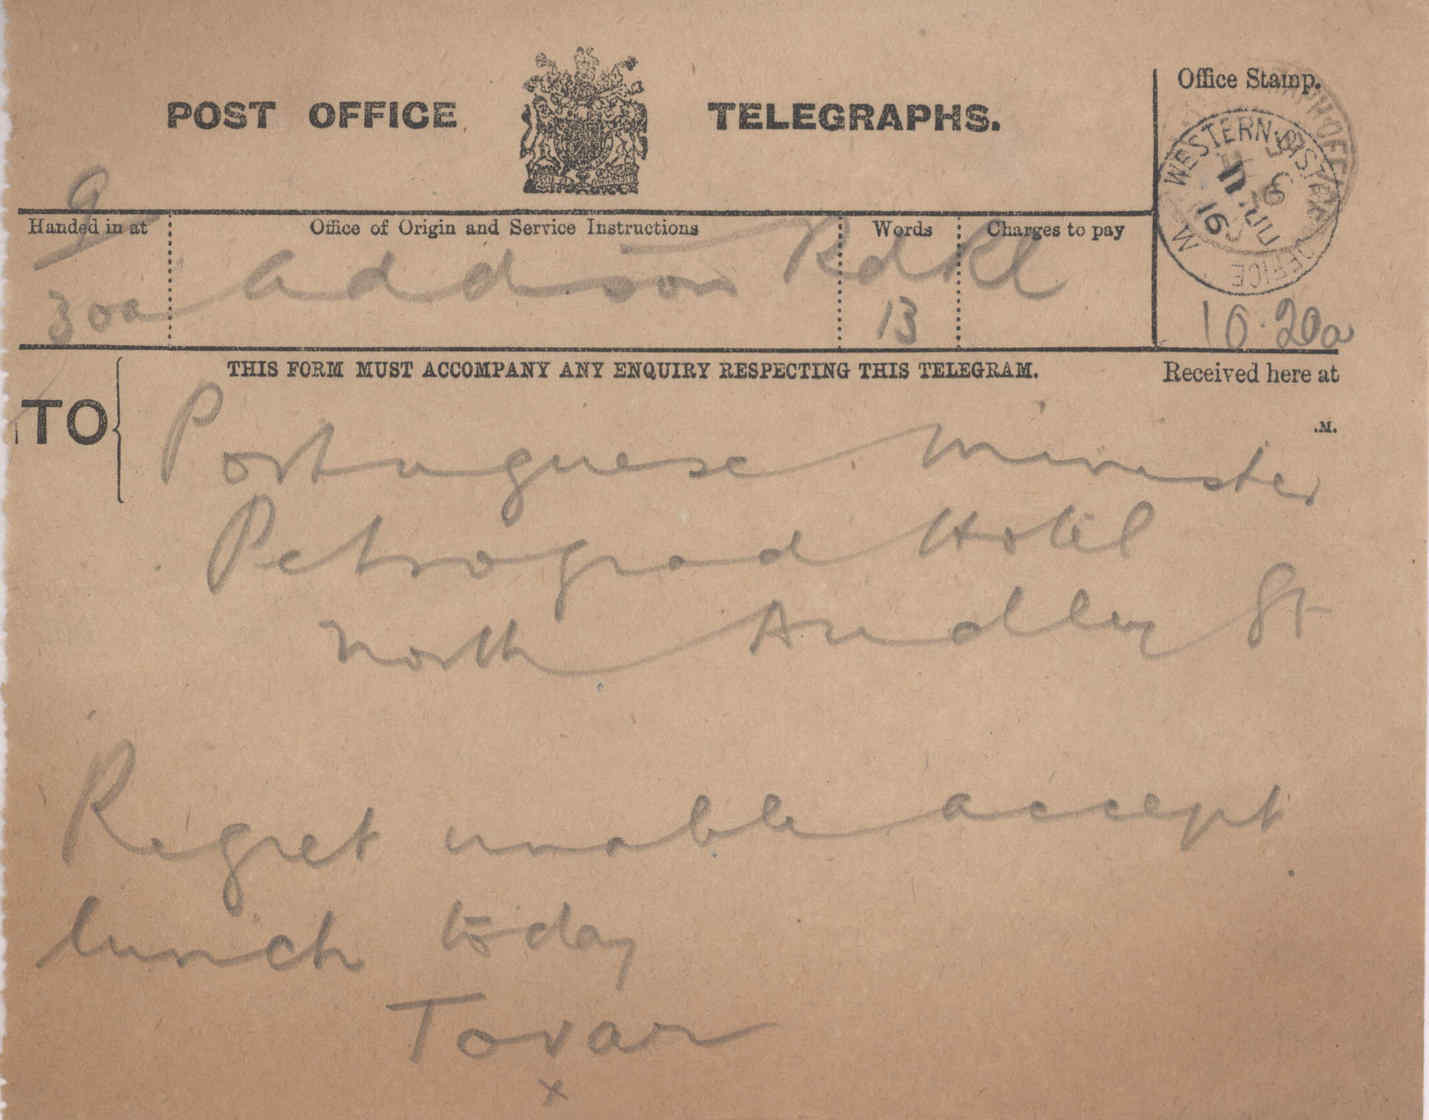 POST OFFICE TELEGRAPHS.
Office Stamp.
WESTERN DISTRICT OFFICE W
JU 9 16
Handed in at
Office of Origin and Service Instructions
Words
Charges to pay
9
30a Addison Rd Kl 13
10.20a
THIS FORM MUST ACCOMPANY ANY ENQUIRY RESPECTING THIS TELEGRAM.
Received here at
.M.
TO
Portuguese Minister
Petrograd Hotel
North Audley St
Regret unable accept
lunch today
Tovar
x